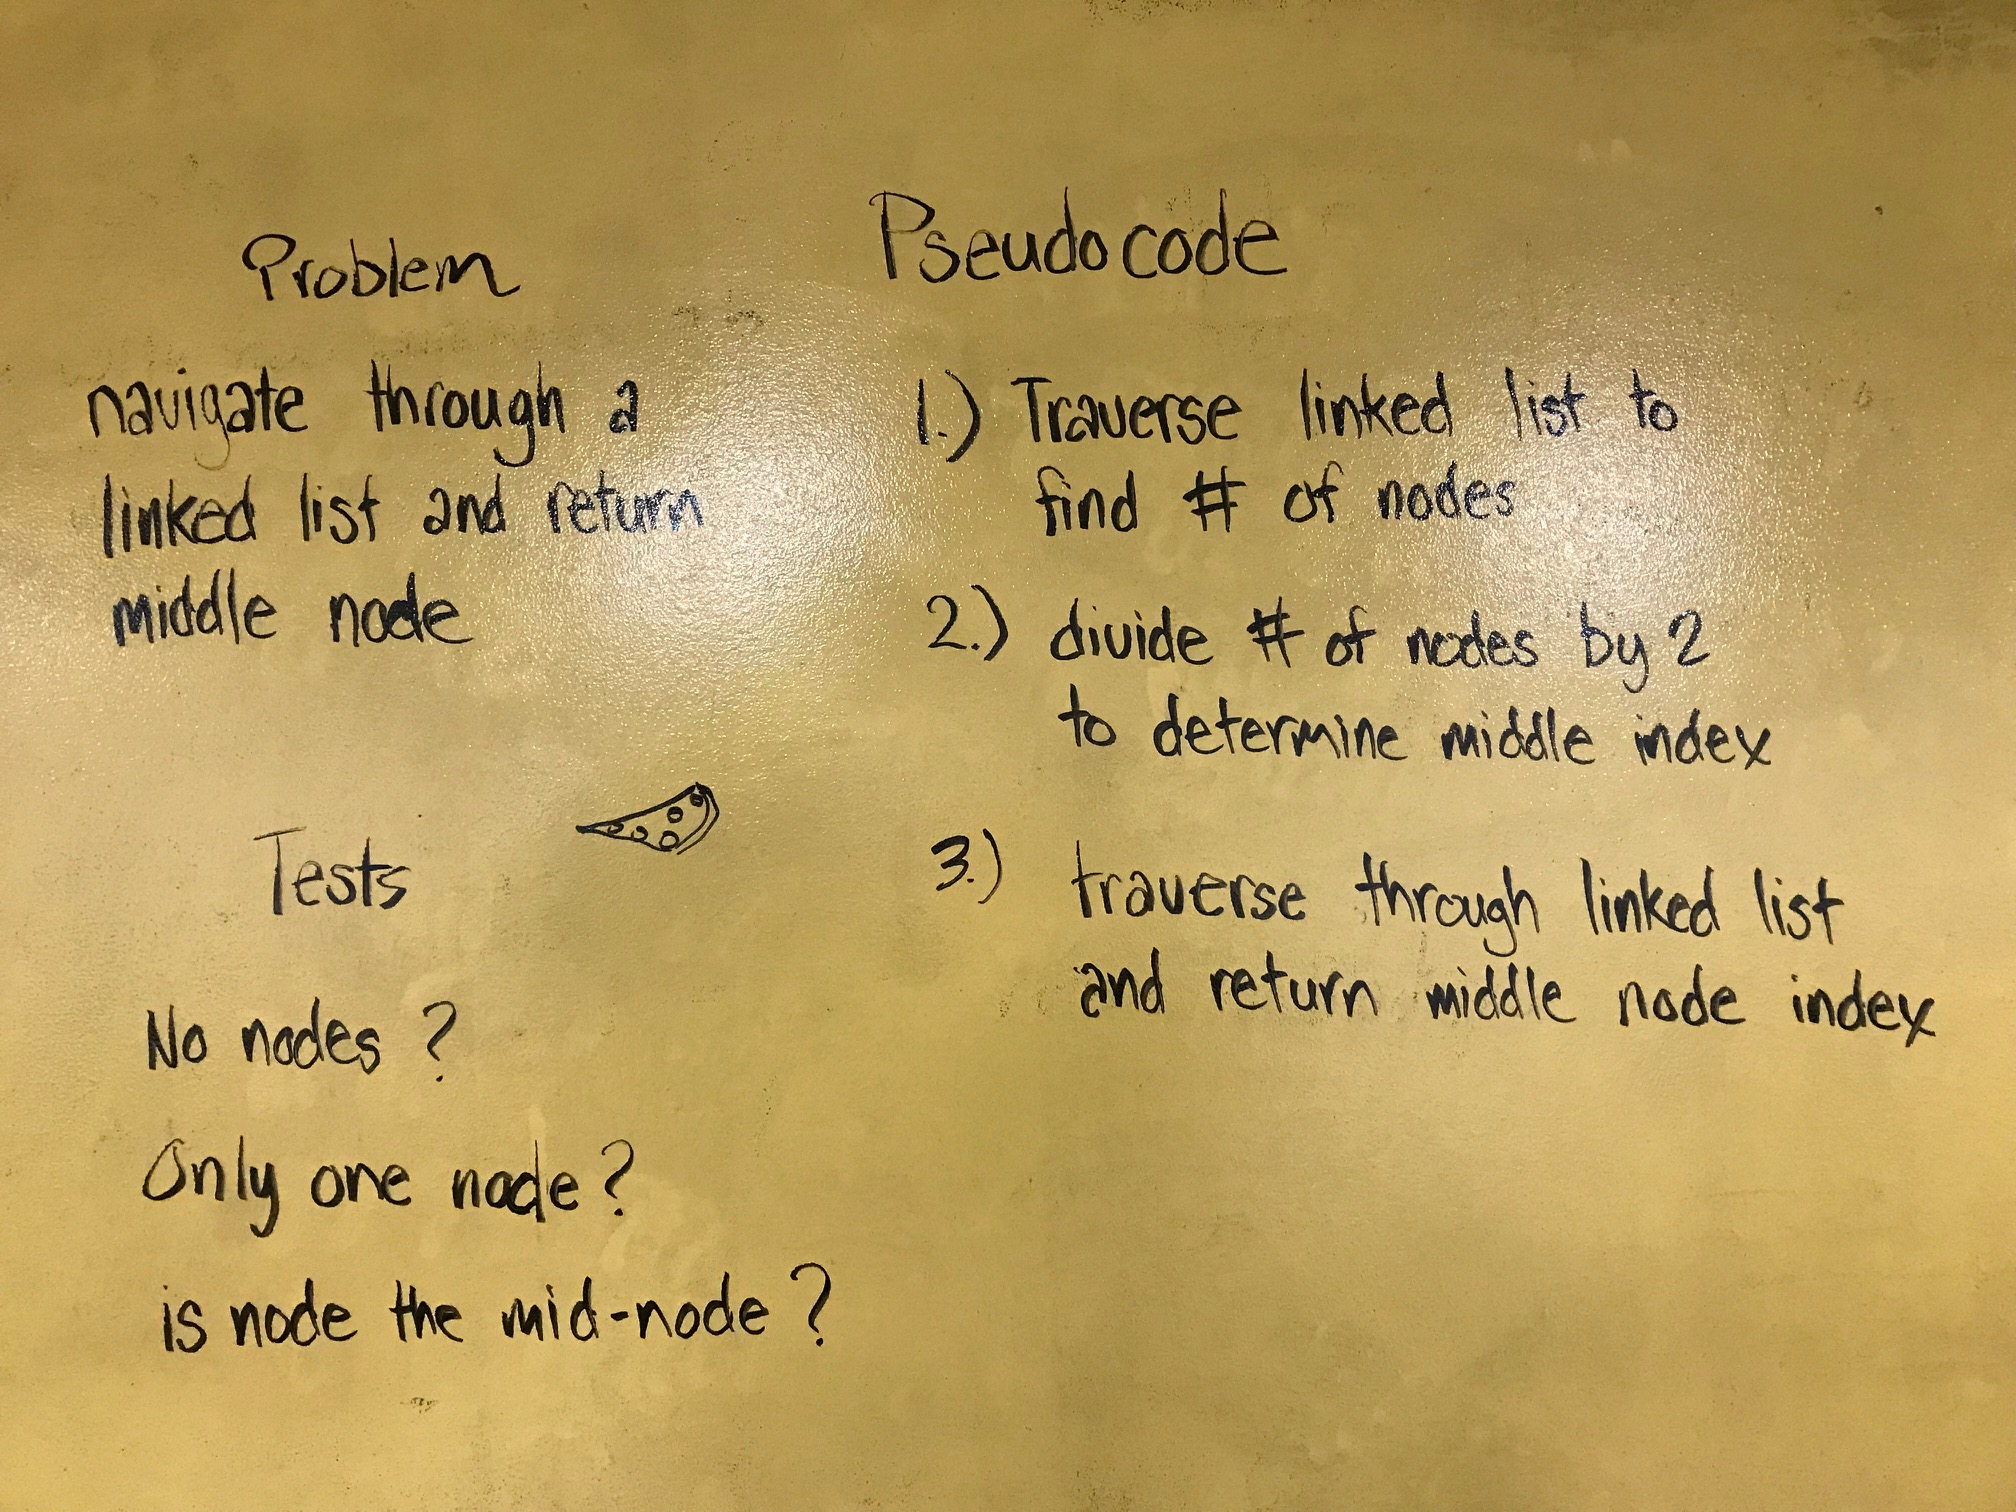 Problem
navigate through a
linked list and return
middle node
Tests
No nodes?
Only one node?
is node the mid-node?
Pseudocode
1.) Traverse linked list to
find # of nodes
2.) divide # of nodes by 2
to determine middle index
3.) traverse through linked list
and return middle node index